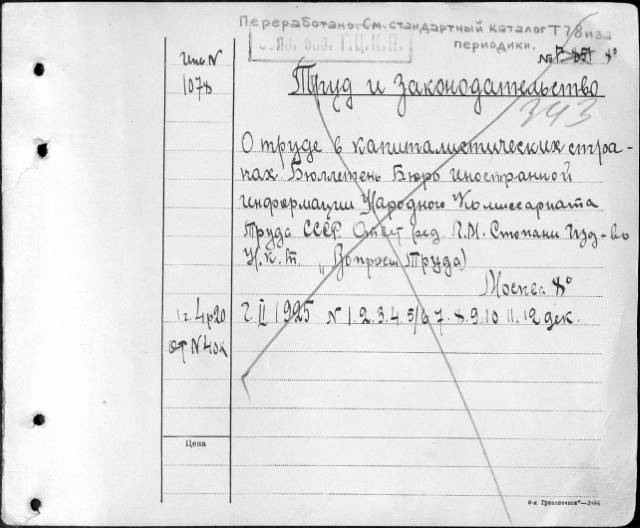 Переработано. См. стандартный каталог Т78 из-за
периодики.
Г.Ц.К.П.
№ 7-851 8°
Инв. N
1078
Труд и законодательство
343
О труде в капиталистических стра-
нах. Бюллетень Бюро иностранной
информации Народного Комиссариата
Труда СССР. Ответ ред. А.М. Стопани Изд-во
Н.К.Т. „Вопросы Труда)
Москва 8°
1 г. 4 р 20
от N 40 к
Г. II 1925 N 1.2.3.4.5/6 7. 8. 9.10 11.12 дек.
Цена